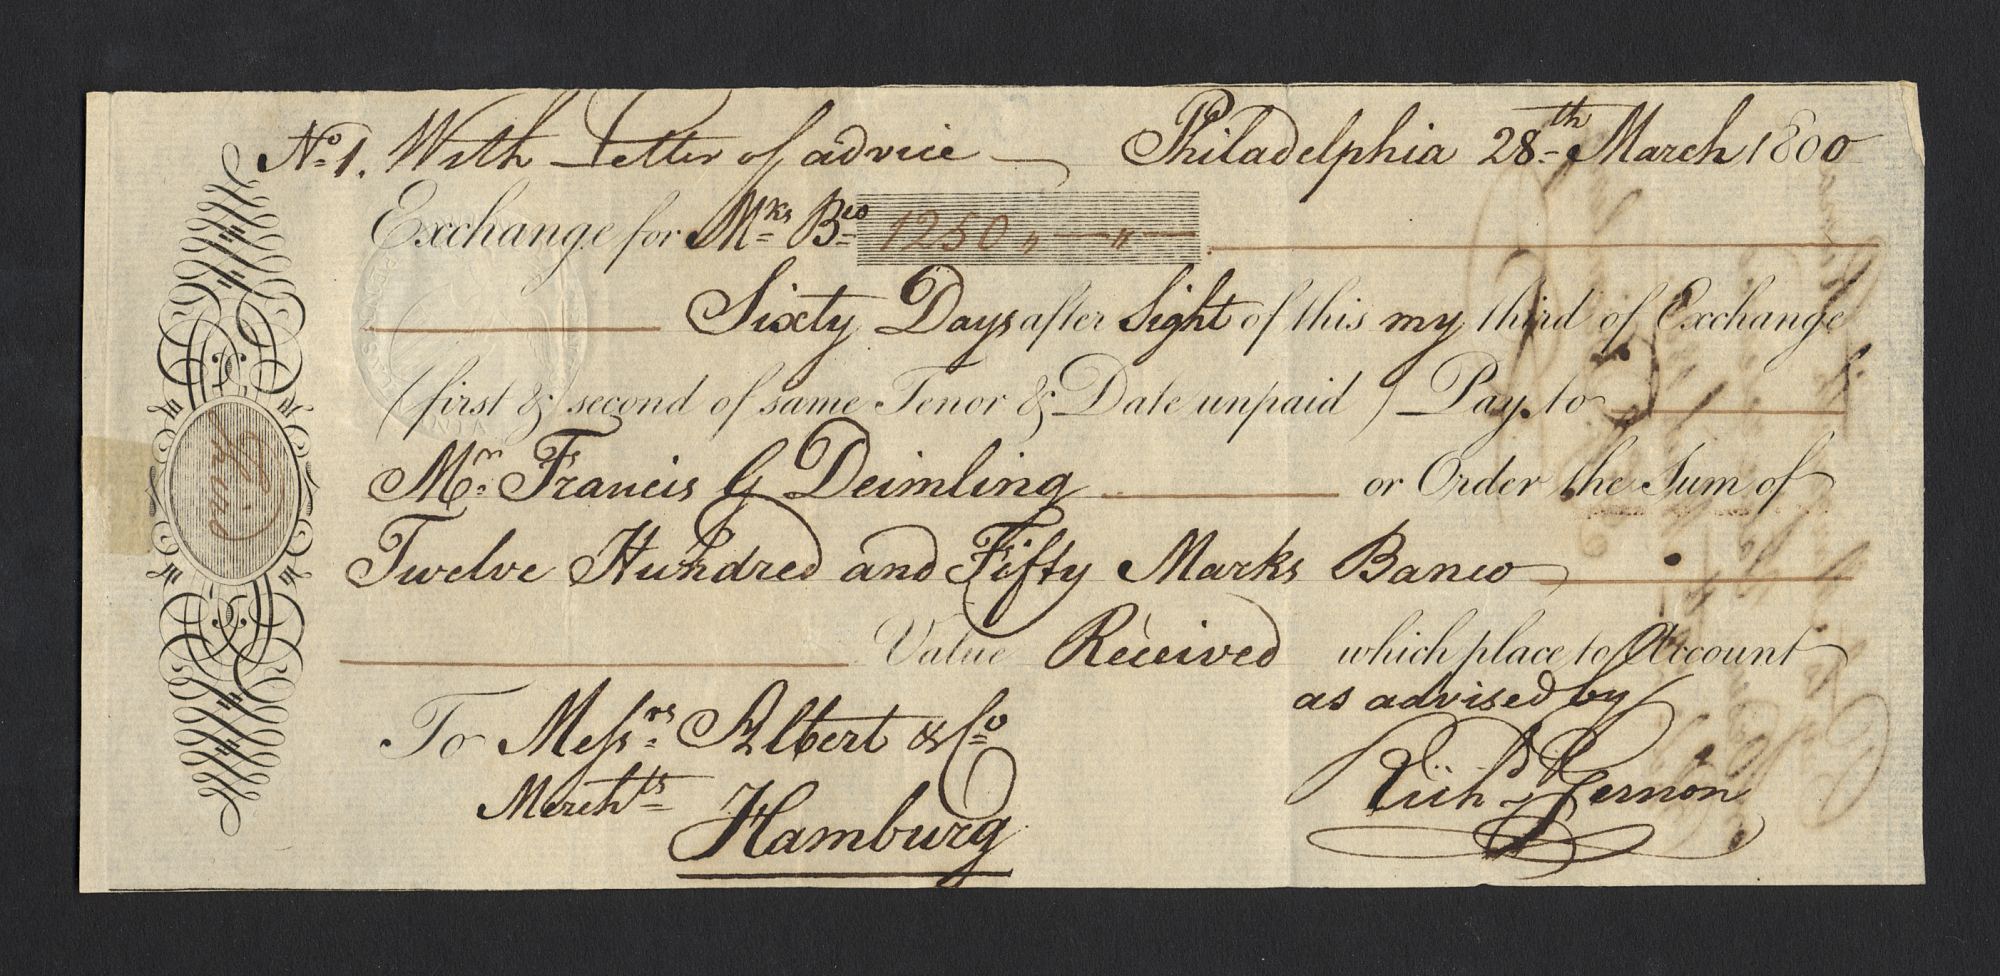 No. 1. With Letter of advice — Philadelphia 28th March 1800
Exchange for Mks Bco 1250 " — " —
Sixty Days after Sight of this my third of Exchange
(first & second of same Tenor & Date unpaid) Pay to
Mr. Francis G Deimling or Order the Sum of
Twelve Hundred and Fifty Marks Banco
Value Received which place to Account
as advised by
To Messrs. Albert & Co
Merchts
Hamburg
Richd
Third